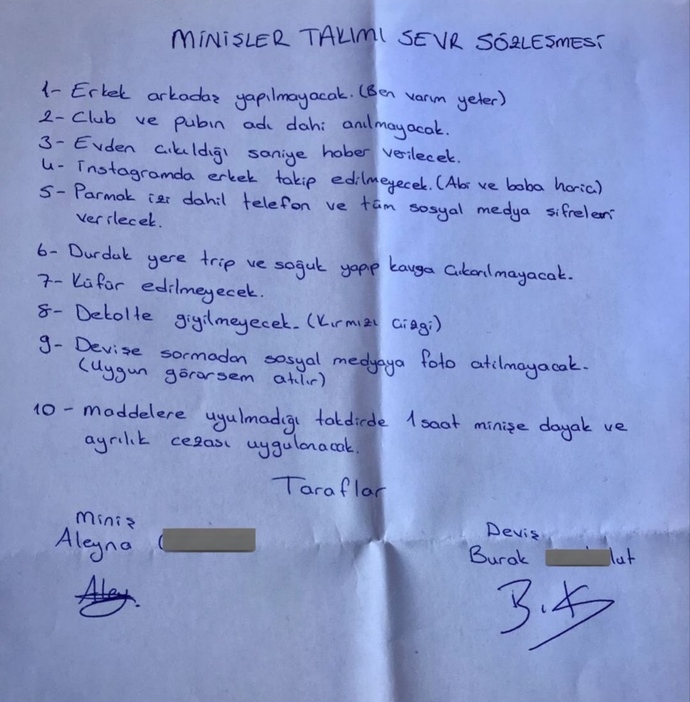 MİNİŞLER TAKIMI SEVR SÖZLEŞMESİ
1- Erkek arkadaş yapılmayacak. (Ben varım yeter)
2- Club ve pubın adı dahi anılmayacak.
3- Evden çıkıldığı saniye haber verilecek.
4- İnstagramda erkek takip edilmeyecek. (Abi ve baba hariç)
5- Parmak izi dahil telefon ve tüm sosyal medya şifreleri
verilecek.
6- Durduk yere trip ve soğuk yapıp kavga çıkarılmayacak.
7- Küfür edilmeyecek.
8- Dekolte giyilmeyecek. (Kırmızı çizgi)
9- Devişe sormadan sosyal medyaya foto atılmayacak.
(Uygun görürsem atılır)
10- Maddelere uyulmadığı takdirde 1 saat minişe dayak ve
ayrılık cezası uygulanacak.
Taraflar
Miniş
Aleyna
Aley.
Deviş
Burak lut
B.K